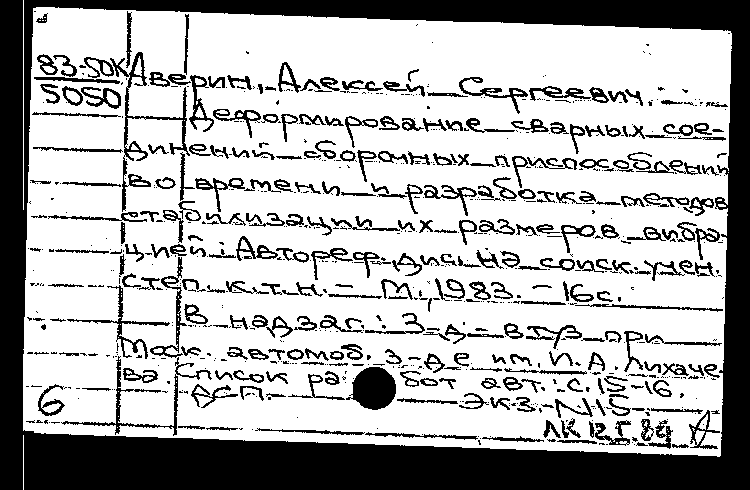 83-50К
5050
Аверин, Алексей Сергеевич.
Деформирование сварных сое-
динений сборочных приспособлений
во времени и разработка методов
стабилизации их размеров вибра-
цией: Автореф. дис. на соиск. учен.
степ. к.т.н. - М., 1983. - 16 с.
В надзаг.: З-д-втуз при
Моск. автомоб. з-де им. И. А. Лихаче-
ва. Список работ авт.: с. 15-16.
ДСП. Экз. N15.
6
ЛК 12 Г 84